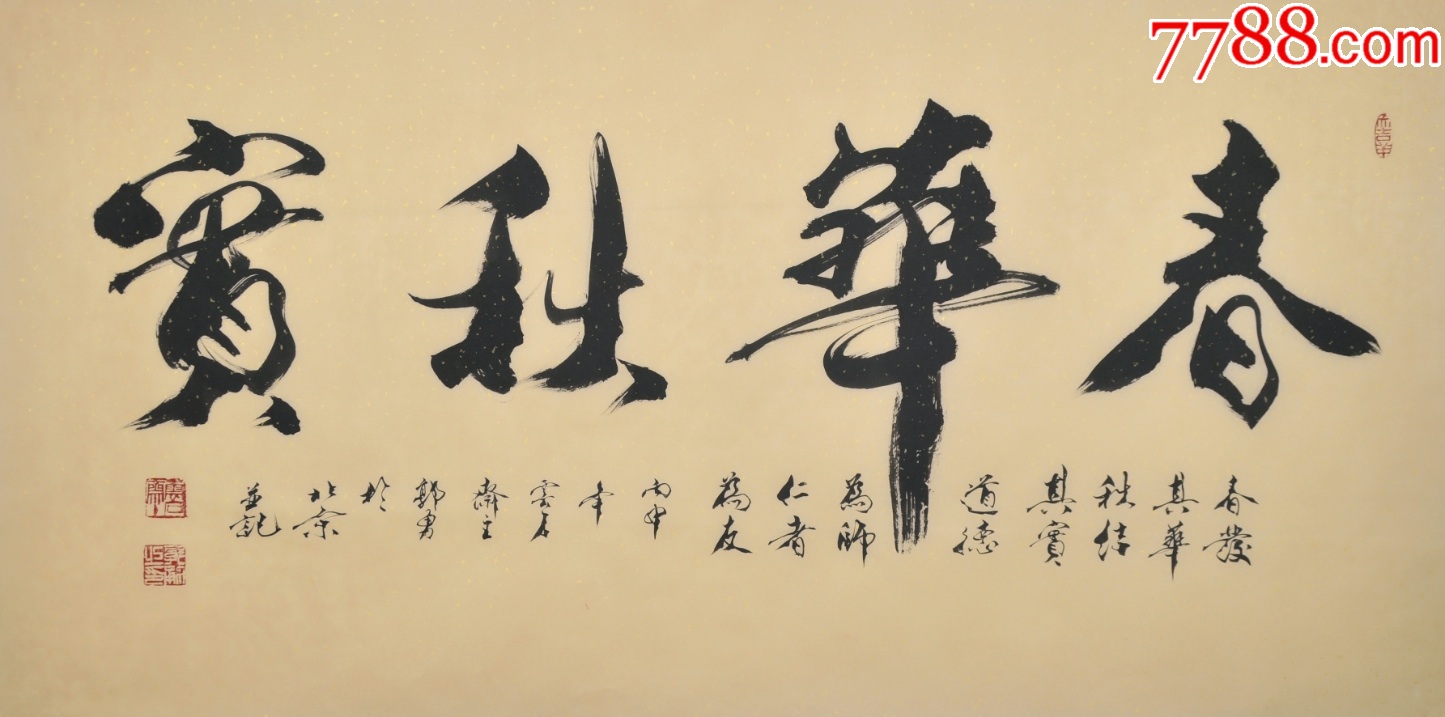 7788.com
春華秋實
春發
其華
秋結
其實
道德
為師
仁者
為友
丙申
年
雲居
齋主
郭勇
於
北京
並記